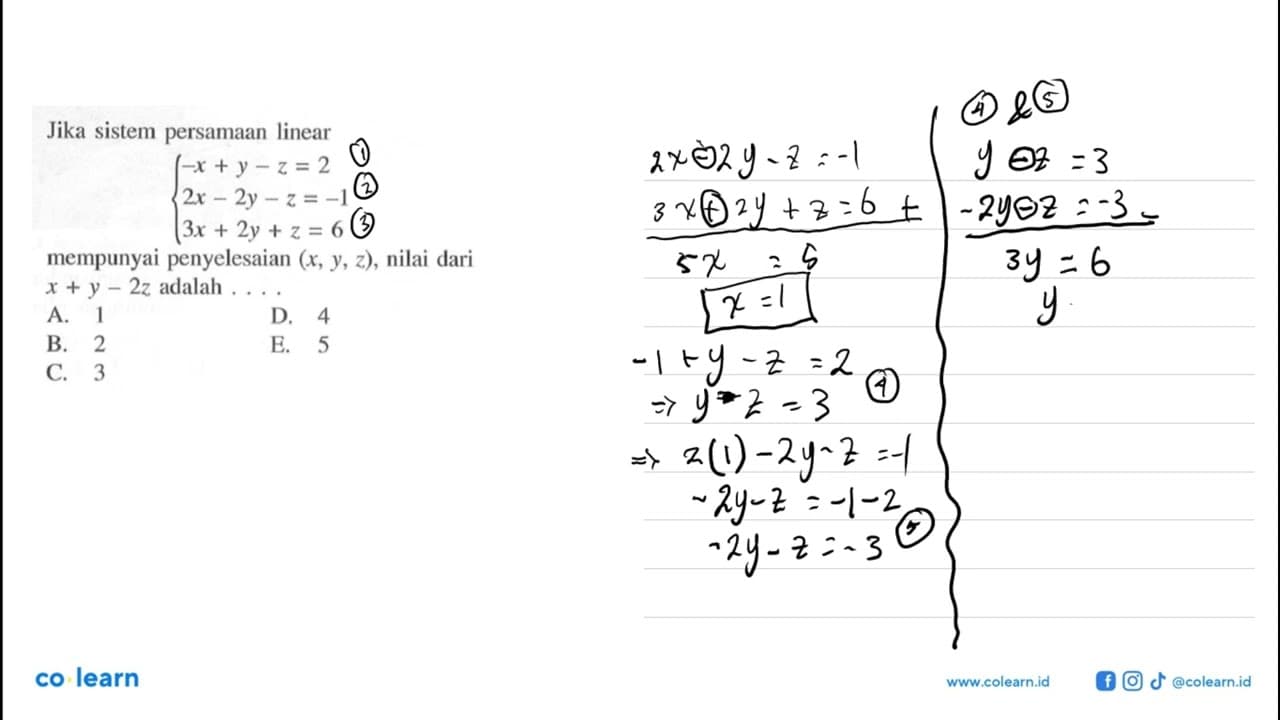 Jika sistem persamaan linear
-x + y - z = 2 ①
2x - 2y - z = -1 ②
3x + 2y + z = 6 ③
mempunyai penyelesaian (x, y, z), nilai dari
x + y - 2z adalah . . . .
A. 1 D. 4
B. 2 E. 5
C. 3
2x - 2y - z = -1
3x + 2y + z = 6 +
5x = 5
x = 1
-1 + y - z = 2
=> y - z = 3 ④
=> 2(1) - 2y - z = -1
-2y - z = -1 - 2
-2y - z = -3 ⑤
④ & ⑤
y - z = 3
-2y - z = -3 -
3y = 6
y
co learn
www.colearn.id
@colearn.id